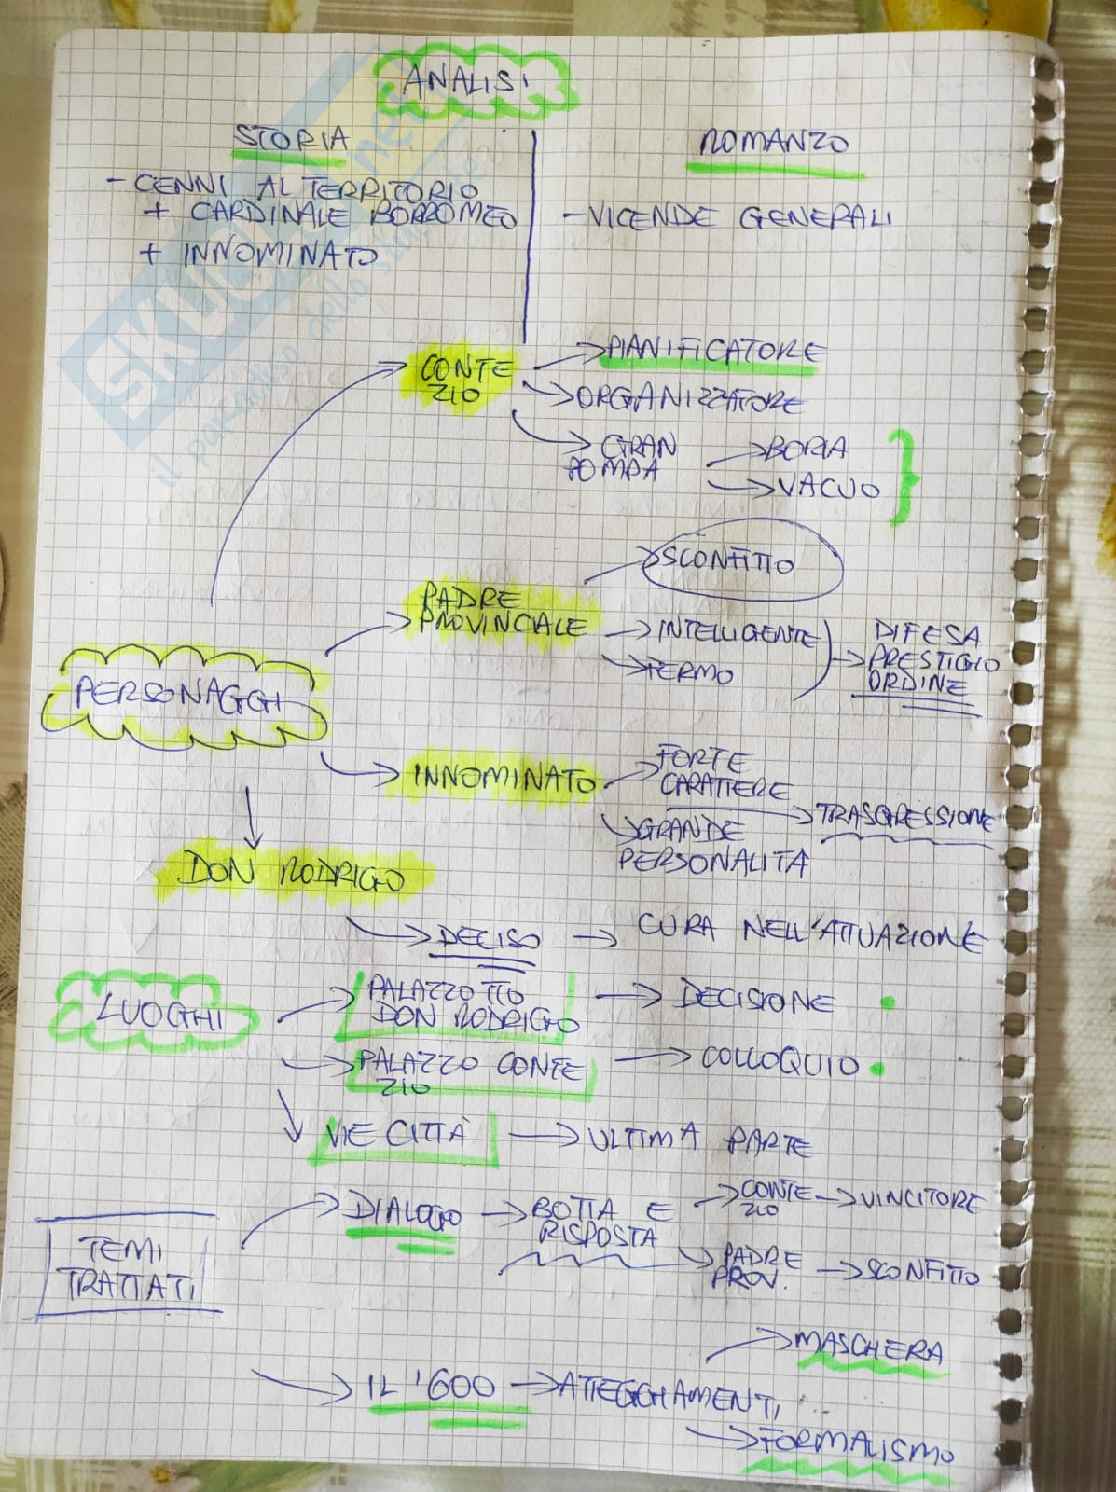 ANALISI
STORIA
ROMANZO
- CENNI AL TERRITORIO
+ CARDINALE BORROMEO
+ INNOMINATO
- VICENDE GENERALI
CONTE
ZIO
PIANIFICATORE
ORGANIZZATORE
GRAN
POMPA
BORIA
VACUO
PERSONAGGI
PADRE
PROVINCIALE
SCONFITTO
INTELLIGENTE
FERMO
DIFESA
PRESTIGIO
ORDINE
INNOMINATO
FORTE
CARATTERE
TRASGRESSIONE
GRANDE
PERSONALITÀ
DON RODRIGO
DECISO
CURA NELL'ATTUAZIONE
LUOGHI
PALAZZOTTO
DON RODRIGO
DECISIONE
PALAZZO CONTE
ZIO
COLLOQUIO
VIE CITTÀ
ULTIMA PARTE
TEMI
TRATTATI
DIALOGO
BOTTA E
RISPOSTA
CONTE
ZIO
VINCITORE
PADRE
PROV.
SCONFITTO
IL '600
ATTEGGIAMENTI
MASCHERA
FORMALISMO
SKUOLA.net
il paradiso dello studente